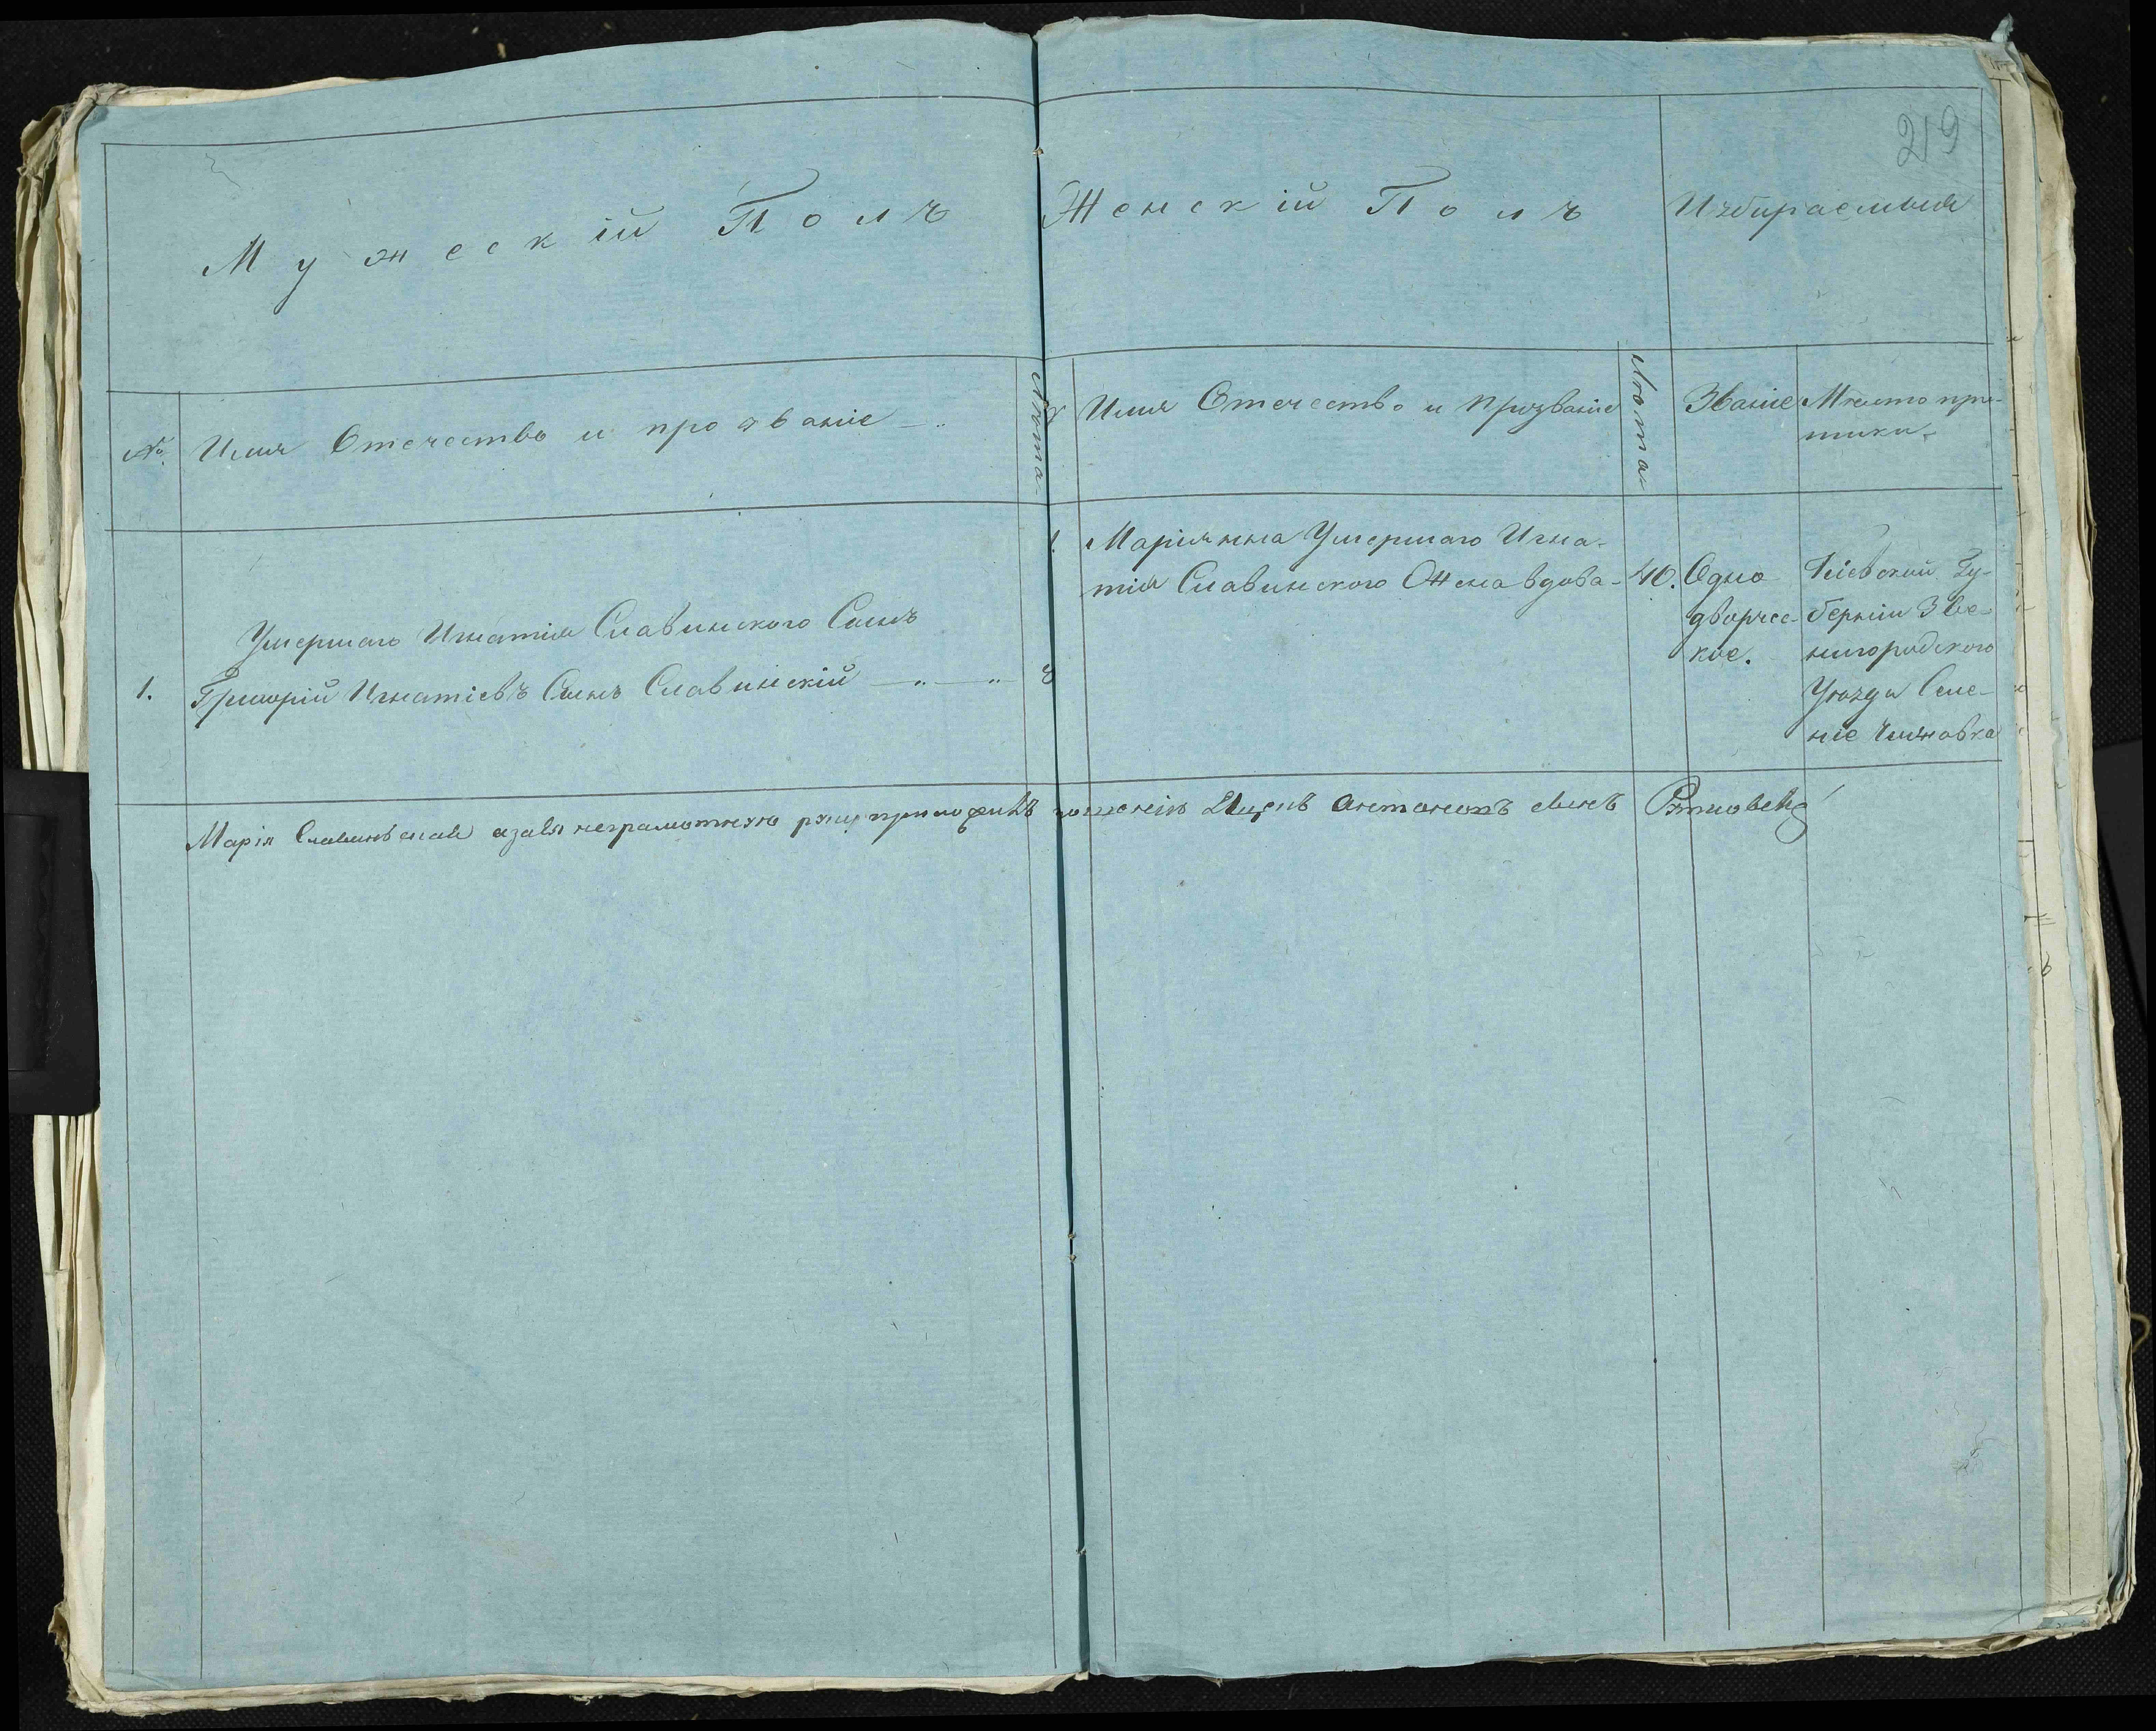 219
Мужескій Полъ
Женскій Полъ
Избираемыя
№
Имя Отечество и прозваніе
Лѣта
№
Имя Отечество и прозваніе
Лѣта
Званіе
Мѣсто при-
писки.
Умершаго Игнатія Славинского Сынъ
1. Григорій Игнатіевъ Сынъ Славинскій 8
1. Маріянна Умершаго Игна-
тія Славинского Жена вдова 40.
Одно
дворчес-
кое.
Кіевской Гу-
берніи Зве-
нигородского
Уѣзда Селе-
ніе
Марія Славиньская а за ея неграмотную руку приложилъ Антоновъ сынъ